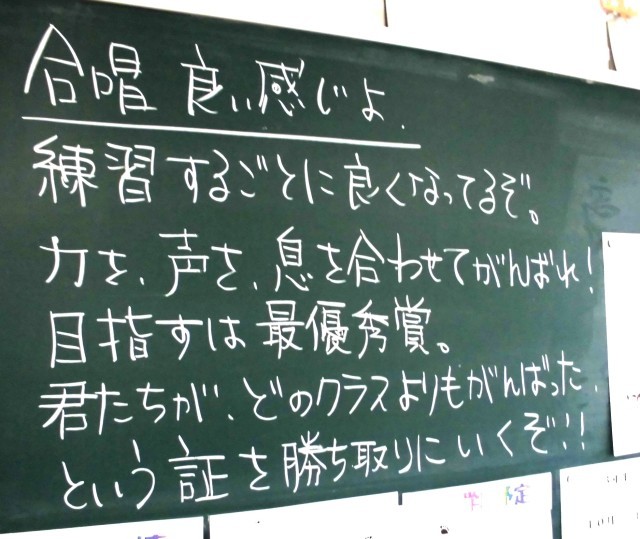 合唱 良い感じよ.
練習するごとに良くなってるぞ。
力を、声を、息を合わせてがんばれ!
目指すは最優秀賞。
君たちが、どのクラスよりもがんばった、
という証を勝ち取りにいくぞ!!
定